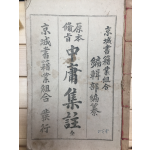 京城書籍業組合
編輯部編纂
原本
備旨
中庸集註
全
京城書籍業組合
發行